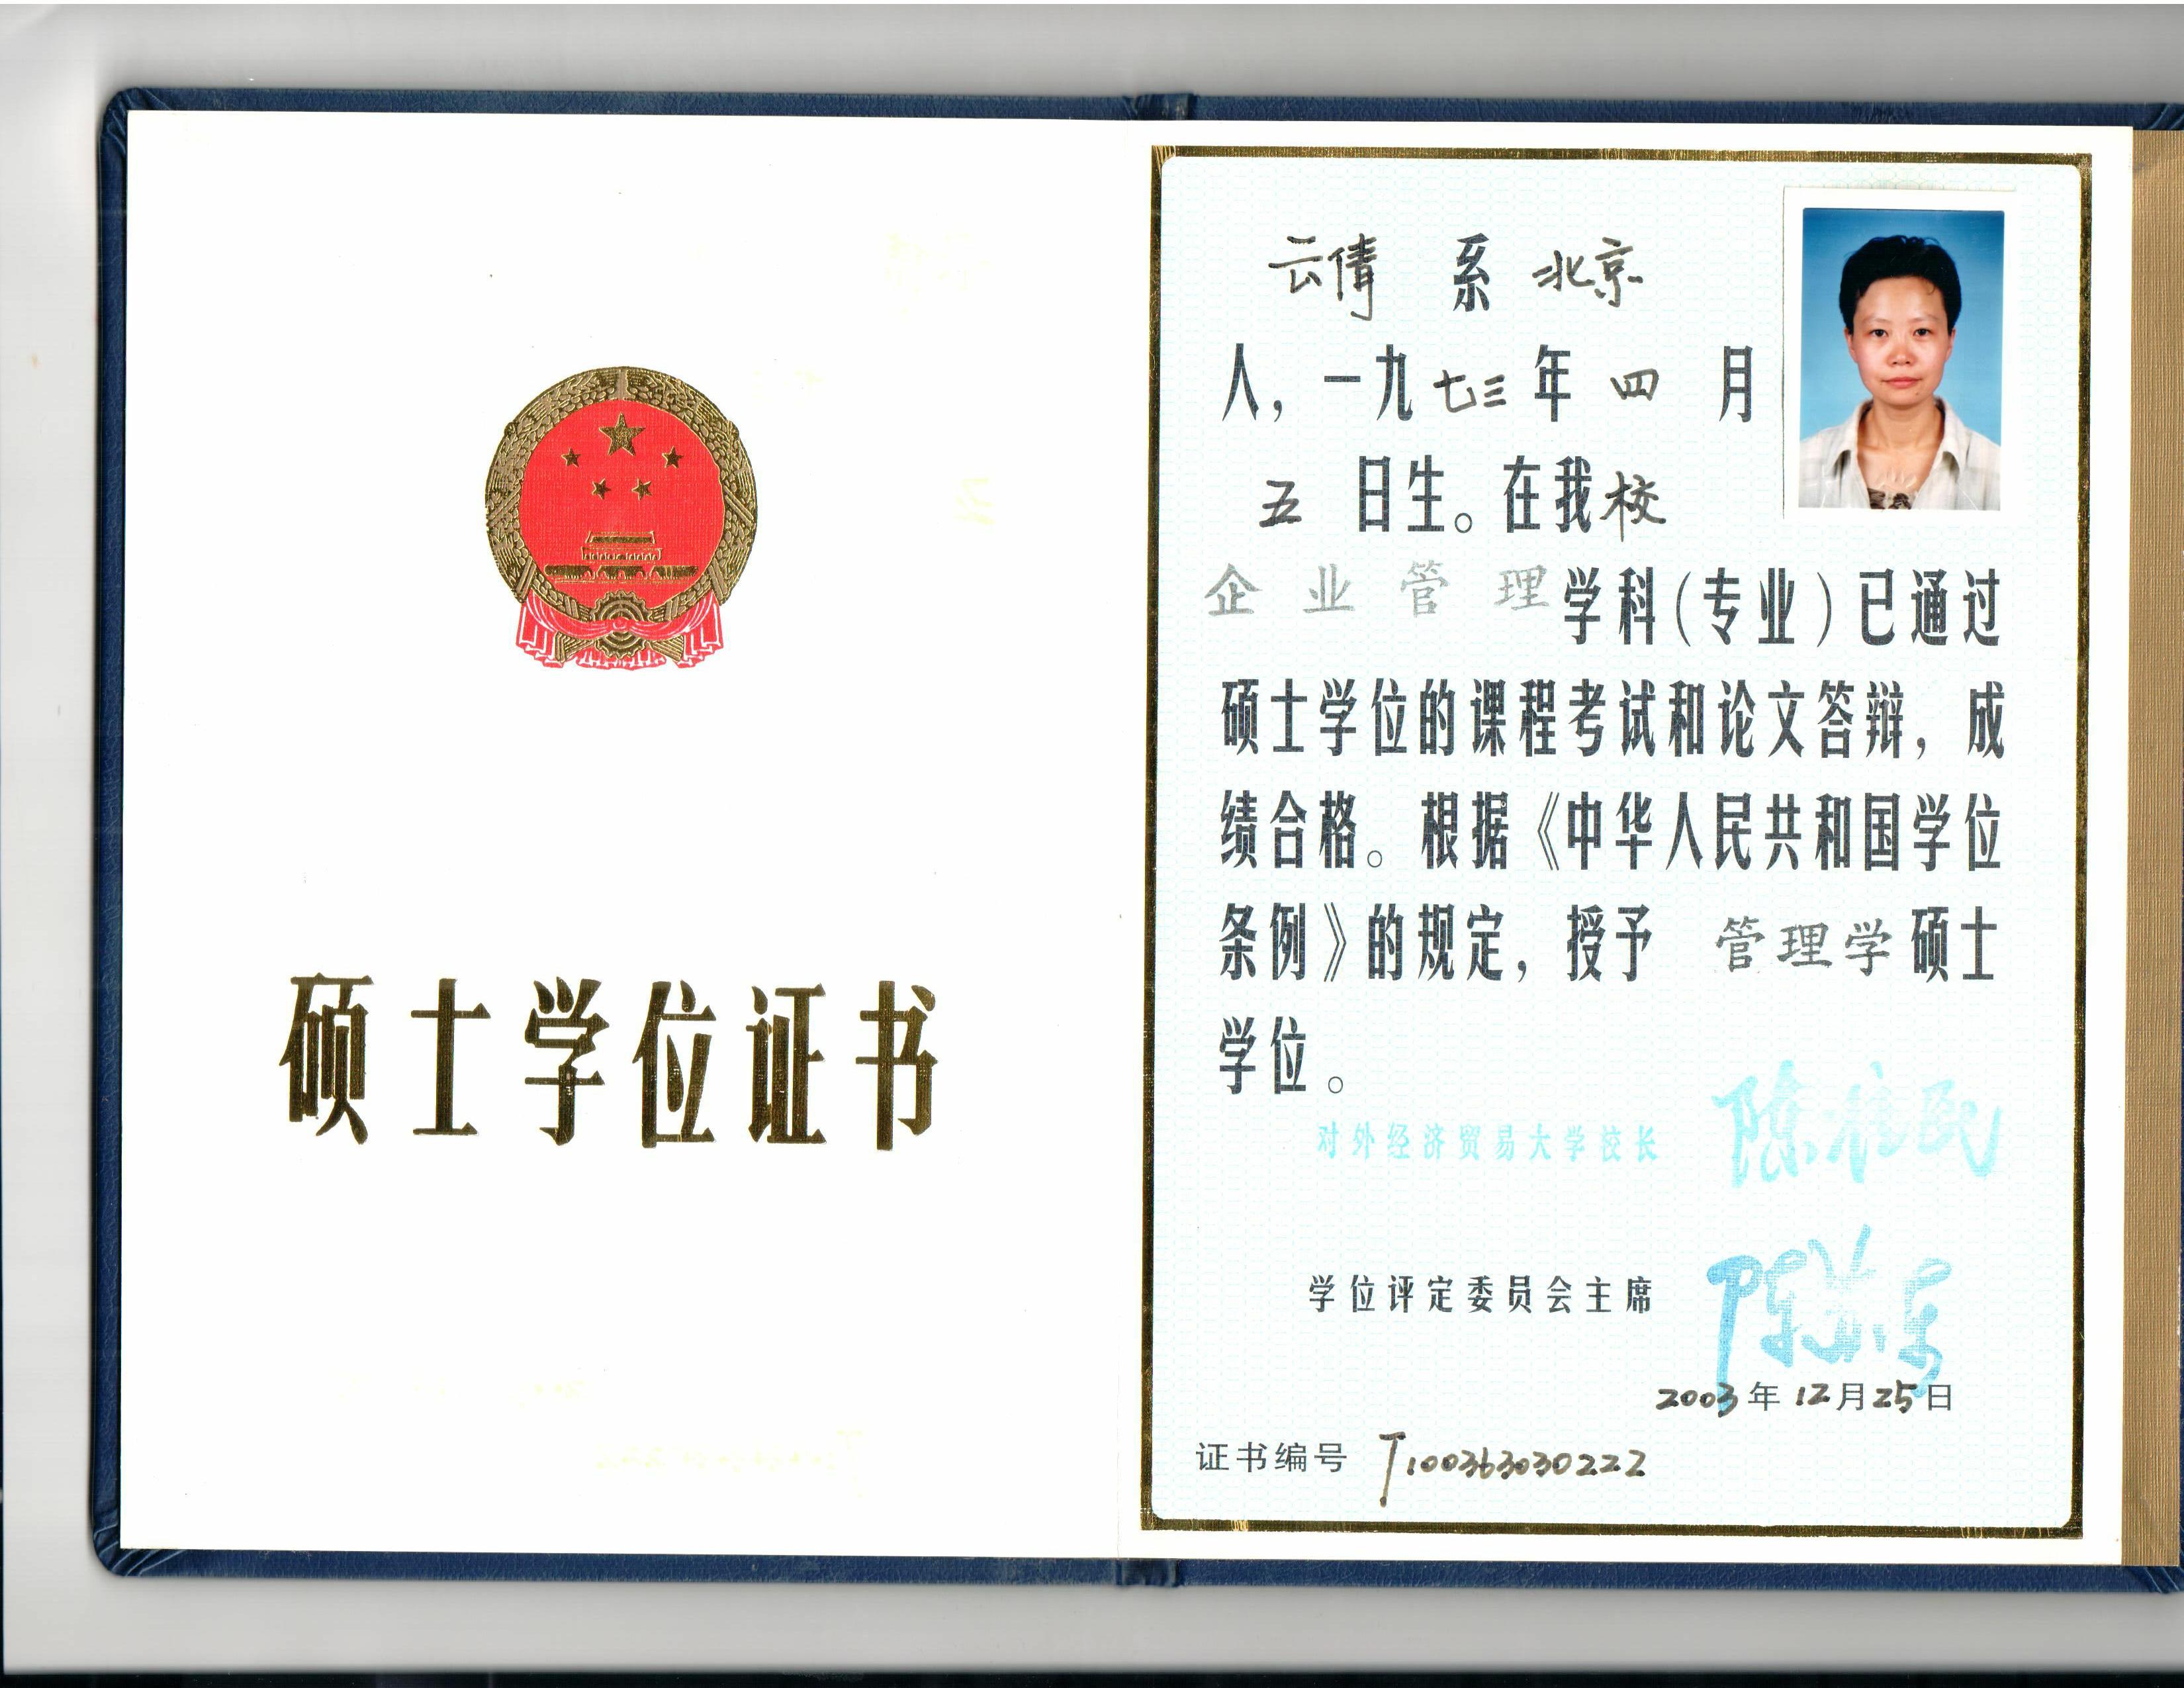 硕士学位证书
云倩 系 北京
人，一九七三年 四 月
五 日生。在我校
企业管理学科（专业）已通过
硕士学位的课程考试和论文答辩，成
绩合格。根据《中华人民共和国学位
条例》的规定，授予 管理学硕士
学位。
对外经济贸易大学校长 陈准民
学位评定委员会主席 陈苏东
2003年12月25日
证书编号 T100363030222